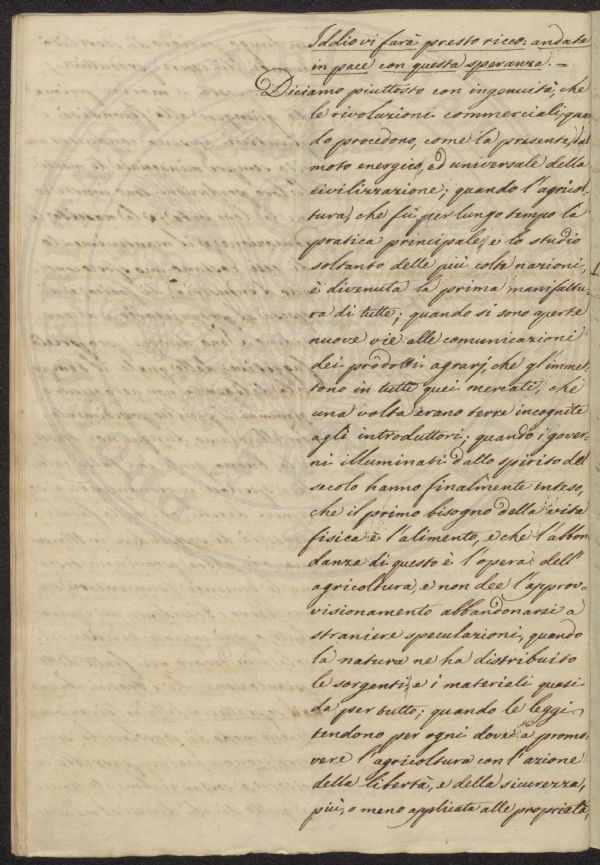 Iddio vi farà presto ricco: andate
in pace con questa speranza. —
Diciamo piuttosto con ingenuità, che
le rivoluzioni commerciali, quan
do procedono, come la presente, dal
moto energico, ed universale della
civilizzazione; quando l'agricol
tura, che fù per lungo tempo la
pratica principale, e lo studio
soltanto delle più colte nazioni,
è divenuta la prima manifattu-
ra di tutte; quando si sono aperte
nuove vie alle comunicazioni
dei prodotti agrarj, che gl'immet
tono in tutti quei mercati, che
una volta erano terre incognite
agli introduttori; quando i gover
ni illuminati dallo spirito del
secolo hanno finalmente inteso,
che il primo bisogno della vita
fisica è l'alimento, e che l'abbon
danza di questo è l'opera dell'
agricoltura, e non dee l'approv-
visionamento abbandonarsi a
straniere speculazioni, quando
la natura ne ha distribuito
le sorgenti, e i materiali quasi
da per tutto; quando le leggi
tendono per ogni dove a promo-
vere l'agricoltura con l'azione
della libertà, e della sicurezza,
più, o meno applicata alle proprietà,